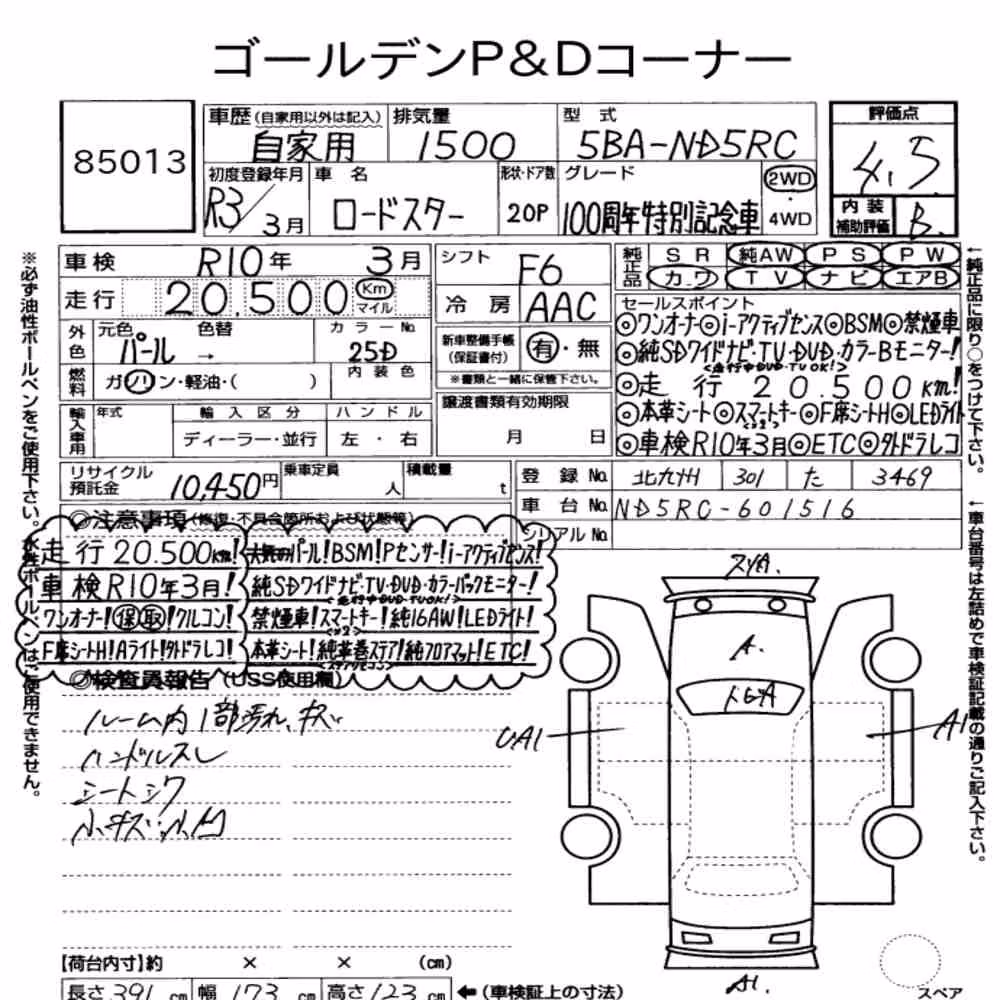 ゴールデンP&Dコーナー
85013
車歴(自家用以外は記入) 排気量 型式 評価点
自家用 1500 5BA-ND5RC 4.5
初度登録年月 車名 形状・ドア数 グレード 2WD・4WD 内装補助評価
R3/3月 ロードスター 20P 100周年特別記念車 B
車検 R10年 3月 シフト F6 純正品 SR 純AW PS PW
カワ TV ナビ エアB
走行 20.500 Km マイル 冷房 AAC
セールスポイント
◎ワンオーナー◎i-アクティブセンス◎BSM◎禁煙車
◎純SDワイドナビ・TV・DVD・カラーBモニター!
<走行中DVD・TUOK!>
◎走行20.500km!
◎本革シート◎スマートキー◎F席シートH◎LEDライト
<×2>
◎車検R10年3月◎ETC◎外ドラレコ
外色 元色 色替 カラーNo. 新車整備手帳(保証書付) 有・無
パール → 25D ※書類と一緒に保管下さい。
燃料 ガソリン・軽油・( ) 内装色
譲渡書類有効期限
月 日
輸入車用 年式 輸入区分 ハンドル
ディーラー・並行 左・右
リサイクル預託金 10,450円 乗車定員 人 積載量 t
登録No. 北九州 301 た 3469
車台No. ND5RC-601516
シリアルNo.
◎注意事項(修復・不具合箇所および状態等)
走行20.500km! 人気のパール!BSM!Pセンサー!i-アクティブセンス!
車検R10年3月! 純SDワイドナビ・TV・DVD・カラーバックモニター!
<走行中DVD・TUOK!>
ワンオーナー!保取!クルコン! 禁煙車!スマートキー!純16AW!LEDライト!
<×2>
F席シートH!Aライト!外ドラレコ! 本革シート!純革巻ステア!純フロアマット!ETC!
<ステアリモコン>
◎検査員報告(USS使用欄)
ルーム内1部汚れ、キズ
ハンドルスレ
シートシワ
小キズ、小凹
A
UA1
A1
A1
【荷台内寸】約 × × (cm)
長さ391cm 幅173cm 高さ123cm ←(車検証上の寸法)
スペア
※必ず油性ボールペンをご使用下さい。水性ボールペンはご使用できません。
←純正品に限り○をつけて下さい。
←車台番号は左詰めで車検証記載の通りご記入下さい。